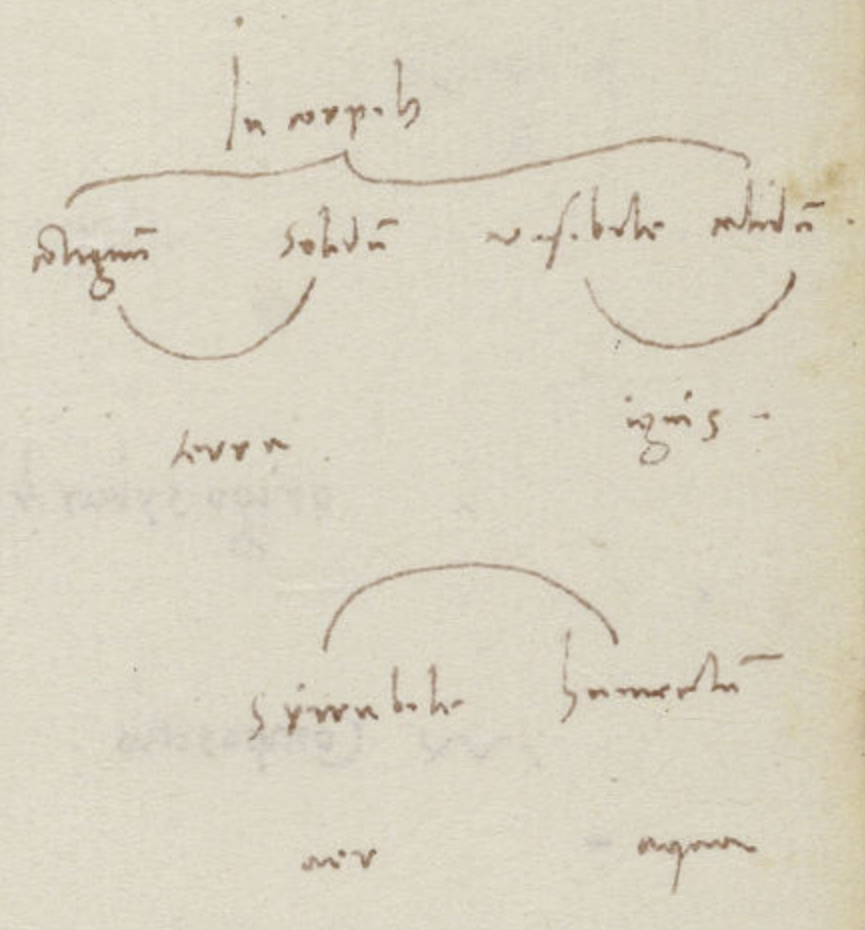 In corp.
solidū visibile calidū
terra ignis
spirabile humectū
aer aqua